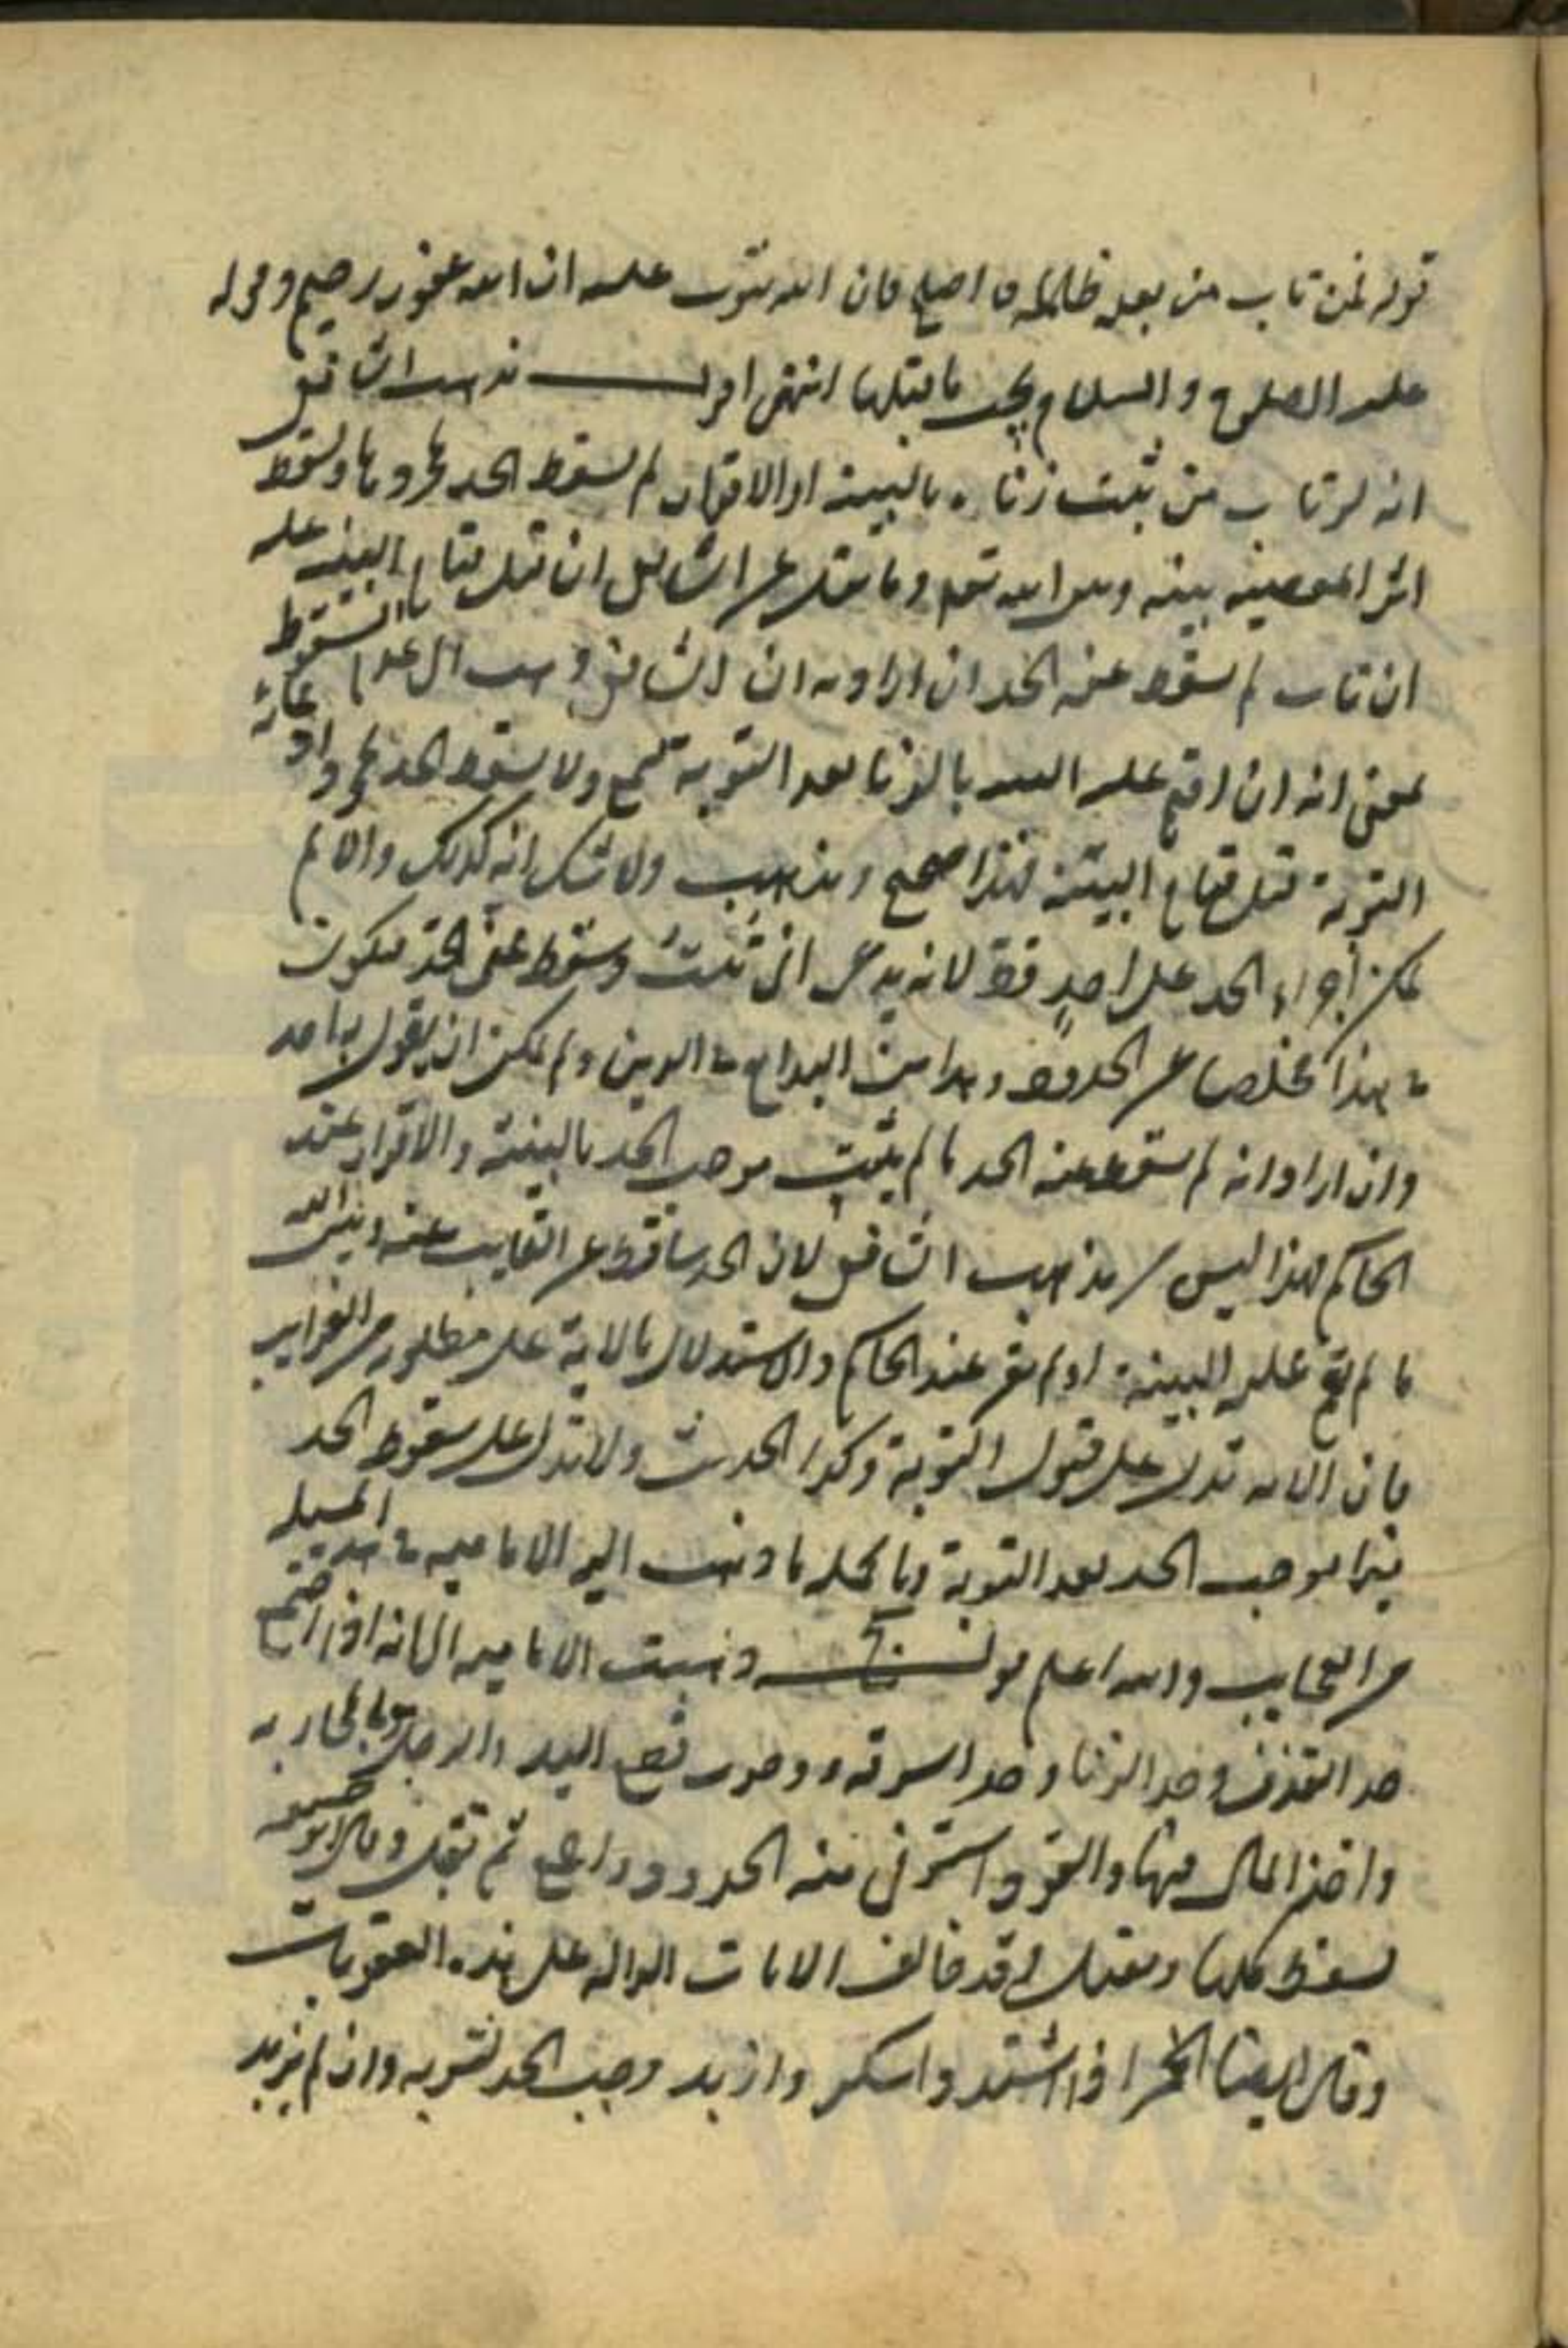 قوله فمن تاب من بعد ظلمه و اصلح فان الله يتوب عليه ان الله غفور رحيم وقوله
عليه الصلوة و السلام يجب ما قبلها انتهى اقول مذهب الشافعي
انه لو تاب من ثبت زناه بالبينة او الاقرار لم يسقط الحد بمجردها ويسقط
اثر المعصية بينه وبين الله تعم وما نقل عن الشافعي ان قبل قيام البينة عليه
ان تاب لم يسقط عنه الحد ان اراد به ان الشافعي ذهب الى عدم السقوط
بمعنى انه ان اقيم عليه البينة بالزنا بعد التوبة تسمع ولا يسقط الحد بمجرد ادعائه
التوبة قبل قيام البينة فهذا صحيح ومذهب ولا شك انه كذلك والا لم
يمكن اجراء الحد على احد قط لانه يدعى انى تبت وسقط عنى الحد فيكون
هذا مخلصا عن الحدود وهذا من البدايع في الدين ولم يمكن ان يقول به احد
وان اراد انه لم يسقط عنه الحد ما لم يثبت موجب الحد بالبينة والاقرار عند
الحاكم فهذا ليس مذهب الشافعي لان الحد ساقط عن التايب بينه وبين الله
ما لم تقم عليه البينة او لم يقر عند الحاكم والاستدلال بالاية على مطلوبه من الغرايب
فان الاية تدل على قبول التوبة وكذا الحديث ولا تدل على سقوط الحد
فيما يوجب الحد بعد التوبة وبالجملة ما ذهب اليه الامامية في هذه المسئلة
من العجايب والله اعلم قوله ذهبت الامامية الى انه اذا اجتمع
حد القذف وحد الزنا وحد السرقة ووجوب قطع اليد والرجل بالمحاربة
واخذ المال فيها والقود استوفى منه الحدود اجمع ثم يقتل وقال ابو حنيفة
يسقط كلها ويقتل وقد خالف الايات الدالة على هذه العقوبات
وقال ايضا الخمر اذا اشتد واسكر وازبد وجب الحد لشربه وان لم يزبد